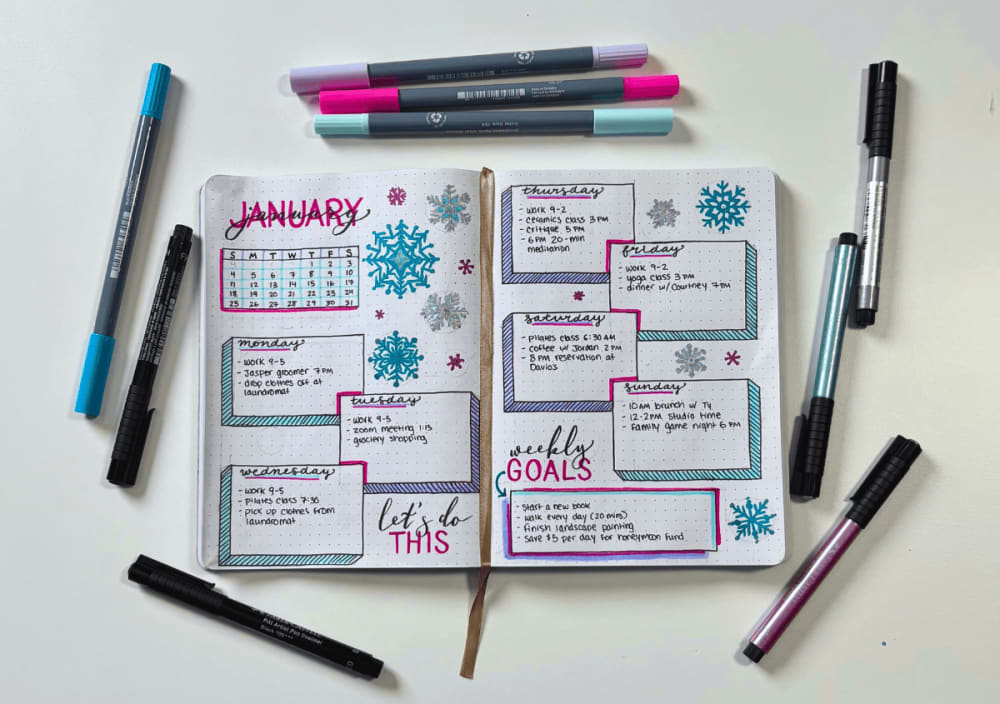 JANUARY
january
S M T W T F S
1 2 3
4 5 6 7 8 9 10
11 12 13 14 15 16 17
18 19 20 21 22 23 24
25 26 27 28 29 30 31
monday
- work 9-5
- Jasper groomer 7 PM
- drop clothes off at
laundromat
tuesday
- work 9-5
- zoom meeting 1:15
- grocery shopping
wednesday
- work 9-5
- pilates class 7:30
- pick up clothes from
laundromat
let's do
THIS
thursday
- work 9-2
- ceramics class 3 PM
- critique 5 PM
- 6 PM 20-min
meditation
friday
- work 9-2
- yoga class 3 PM
- dinner w/ Courtney 7 PM
saturday
- pilates class 6:30 AM
- coffee w/ Jordan 2 PM
- 8 PM reservation at
Davios
sunday
- 10 AM brunch w/ Ty
- 12-2 PM studio time
- family game night 6 PM
weekly
GOALS
- start a new book
- walk every day (20 mins)
- finish landscape painting
- save $5 per day for honeymoon fund
FABER-CASTELL
Pitt Artist Pen Fineliner
Black 199***